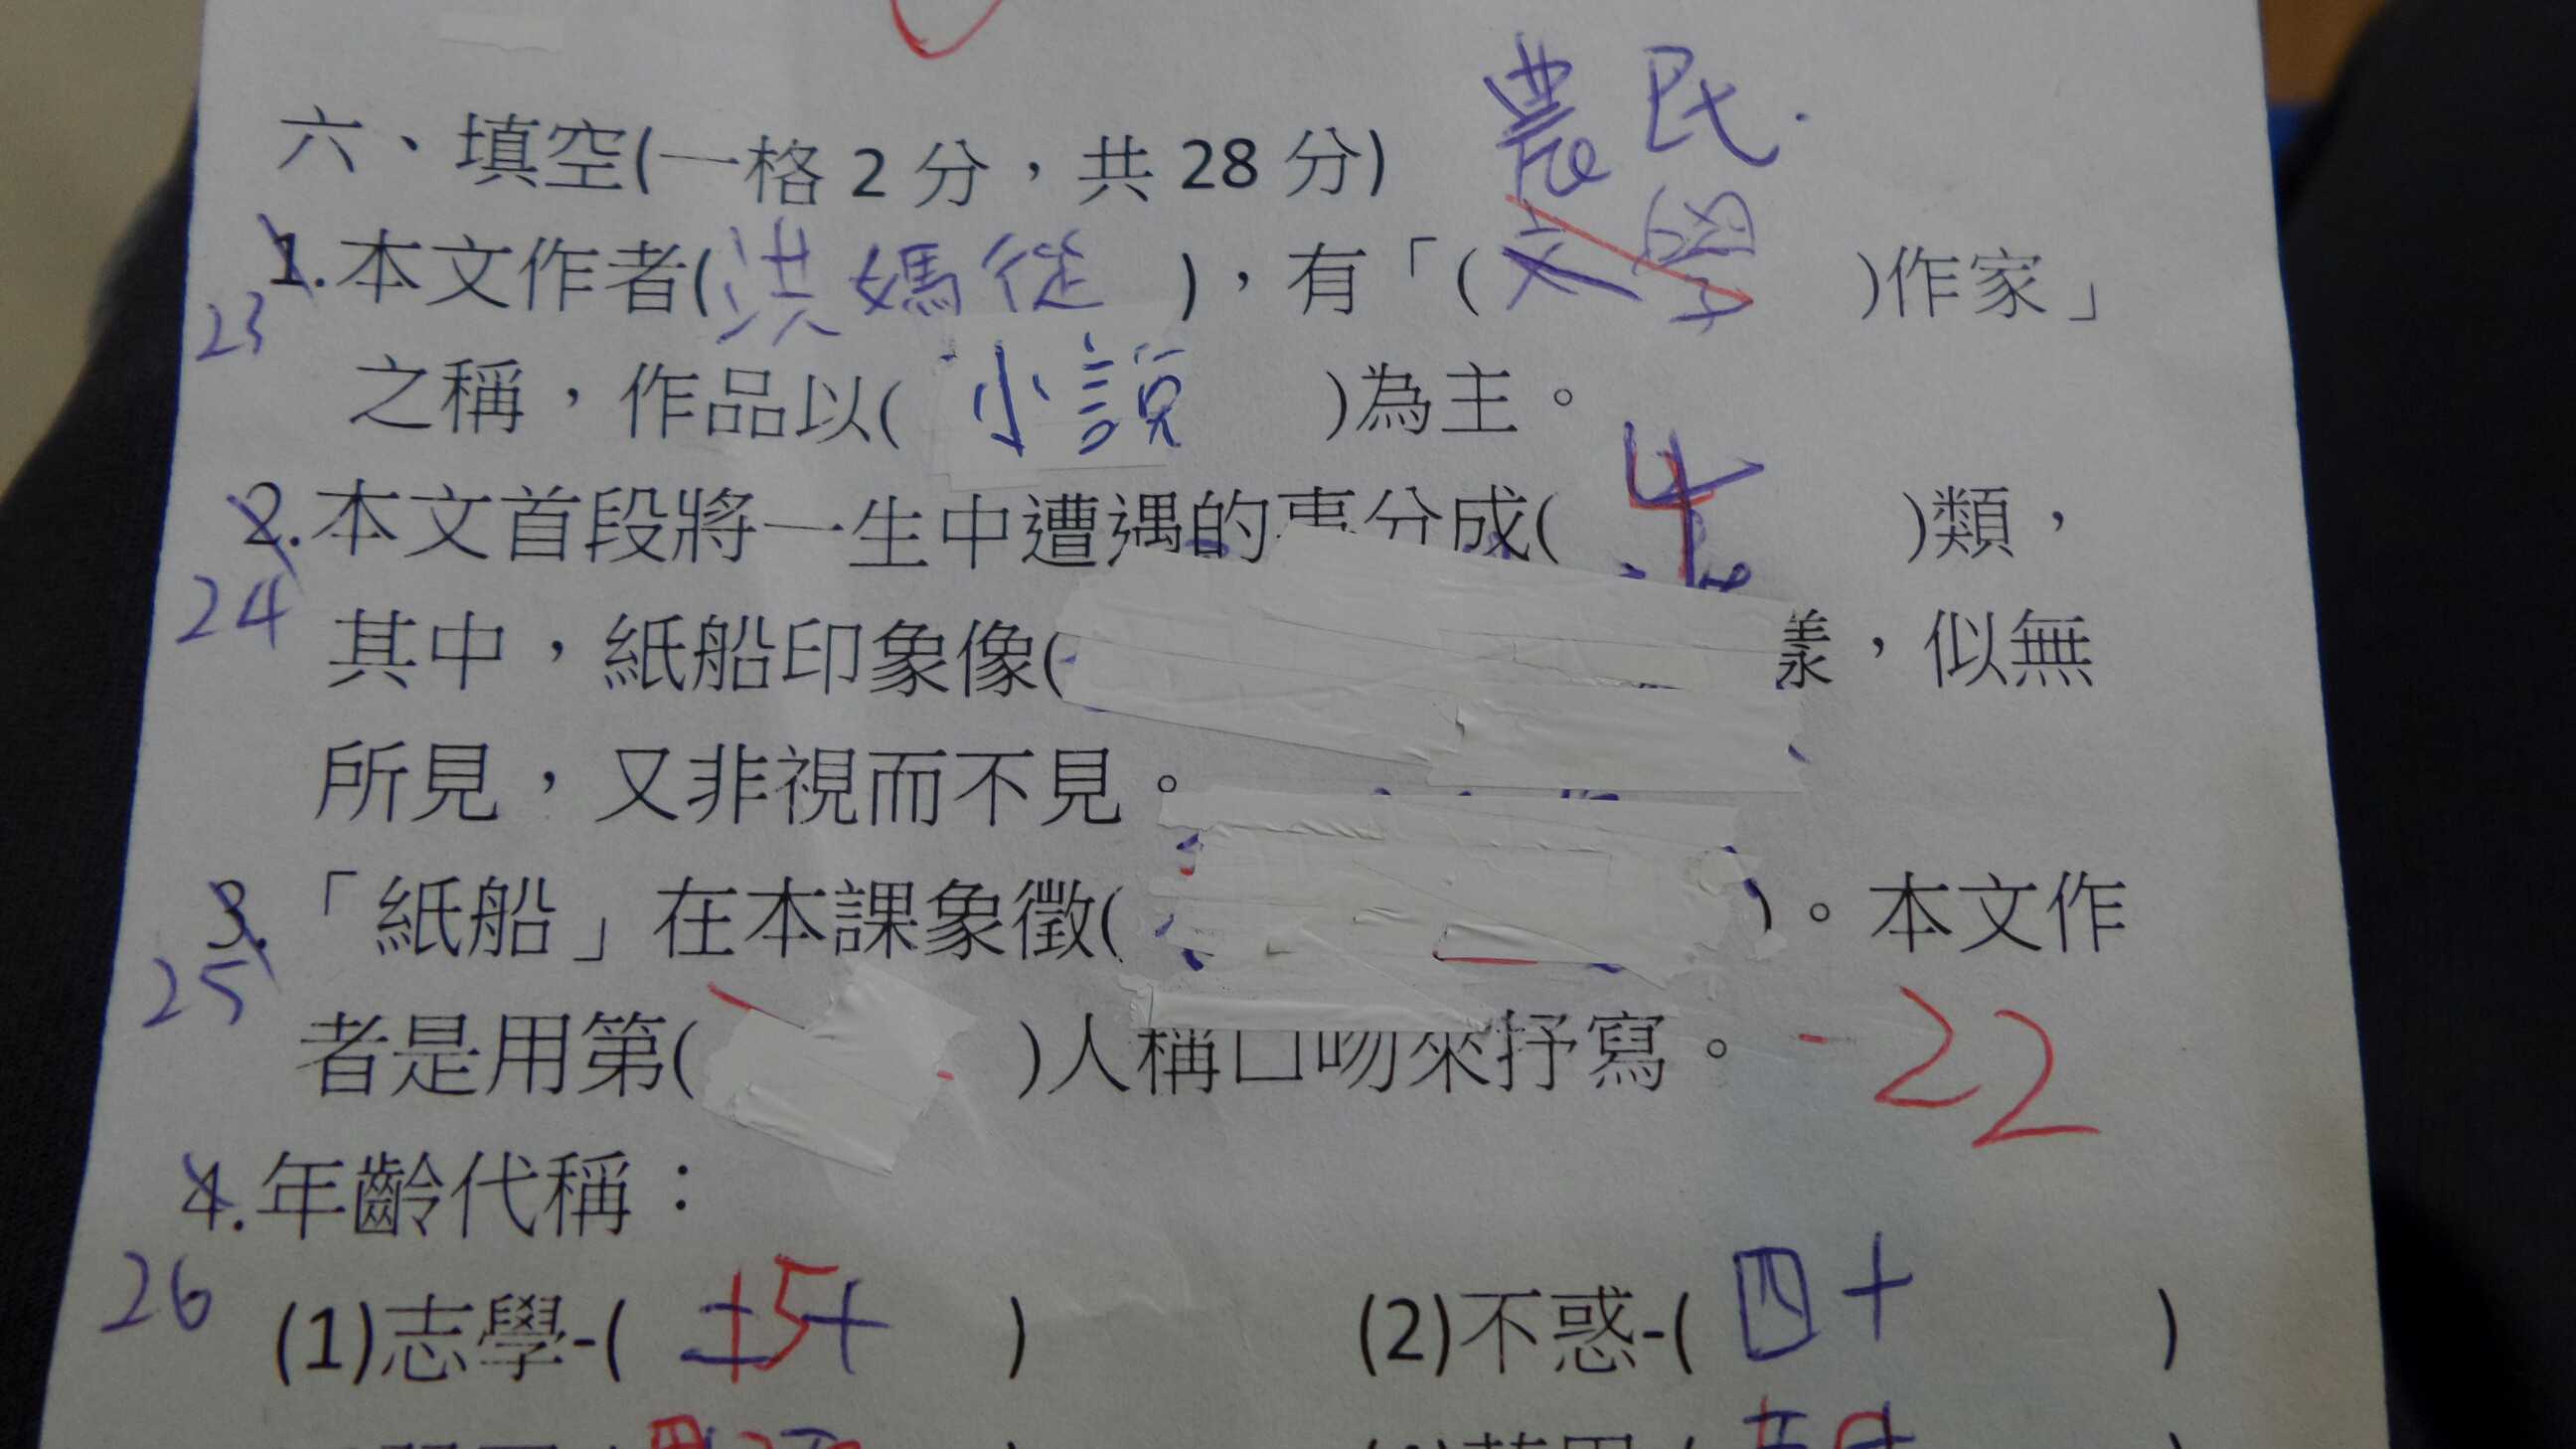 六、填空(一格2分，共28分)
農民
1.本文作者(洪媽從)，有「(文學)作家」
23
之稱，作品以(小說)為主。
2.本文首段將一生中遭遇的事分成(4)類，
24
其中，紙船印象像( 樣，似無
所見，又非視而不見。
3.「紙船」在本課象徵( )。本文作
25
者是用第( )人稱口吻來抒寫。 -22
4.年齡代稱：
26
(1)志學-(15) (2)不惑-(四十)